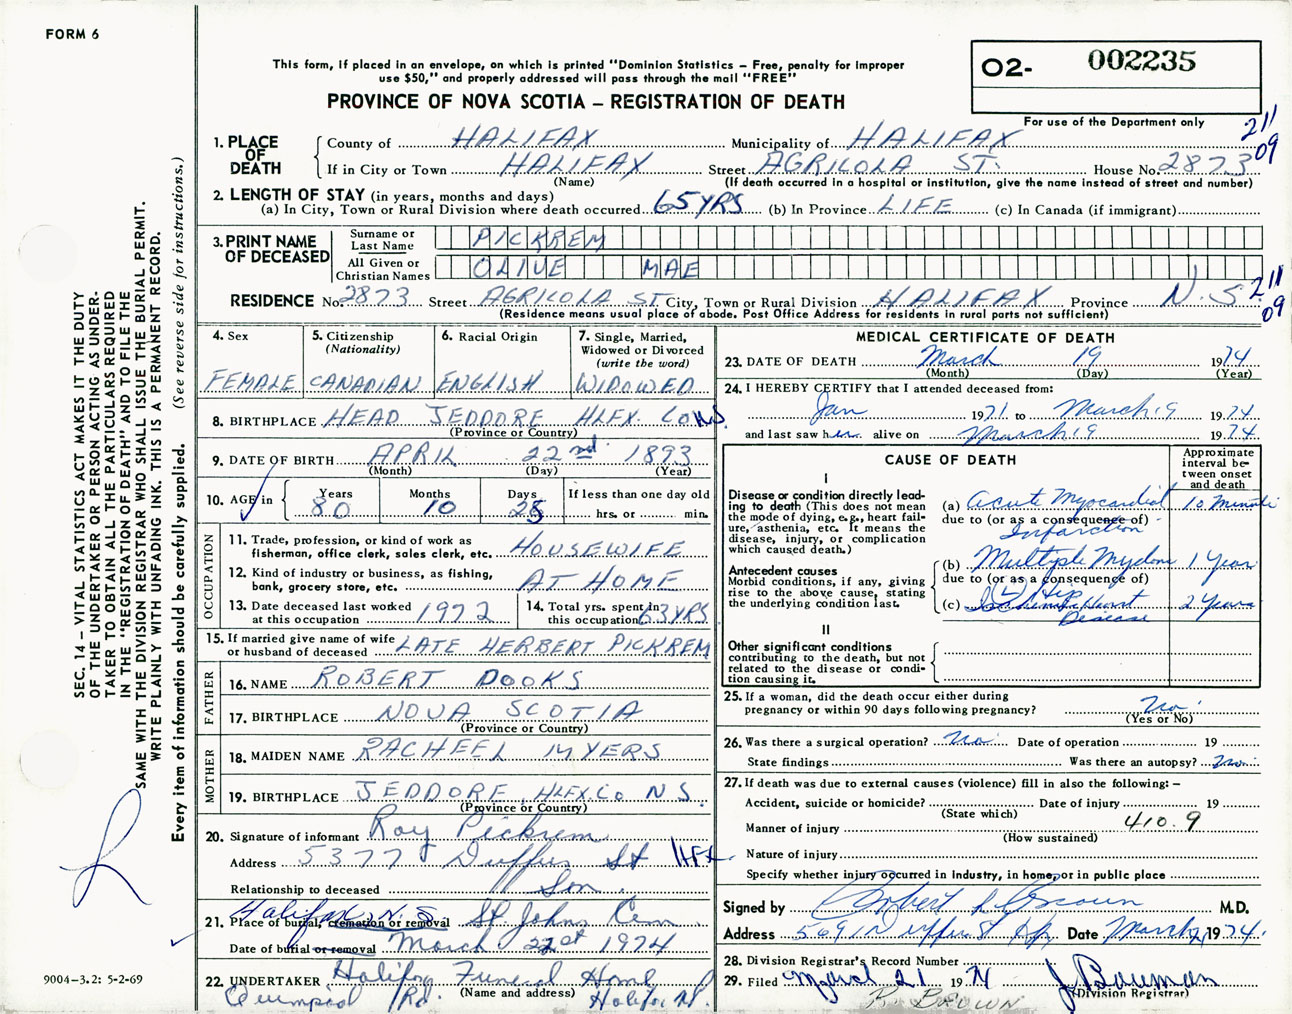 FORM 6
This form, if placed in an envelope, on which is printed "Dominion Statistics – Free, penalty for improper
use $50," and properly addressed will pass through the mail "FREE"
PROVINCE OF NOVA SCOTIA – REGISTRATION OF DEATH
02- 002235
For use of the Department only
211
09
1. PLACE OF DEATH
County of HALIFAX Municipality of HALIFAX
If in City or Town HALIFAX Street AGRICOLA ST. House No. 2873
(Name) (If death occurred in a hospital or institution, give the name instead of street and number)
2. LENGTH OF STAY (in years, months and days)
(a) In City, Town or Rural Division where death occurred 65 YRS (b) In Province LIFE (c) In Canada (if immigrant)
3. PRINT NAME OF DECEASED
Surname or Last Name PICKREM
All Given or Christian Names OLIVE MAE
RESIDENCE No. 2873 Street AGRICOLA ST City, Town or Rural Division HALIFAX Province N.S. 211
09
(Residence means usual place of abode. Post Office Address for residents in rural parts not sufficient)
4. Sex
FEMALE
5. Citizenship
(Nationality)
CANADIAN
6. Racial Origin
ENGLISH
7. Single, Married,
Widowed or Divorced
(write the word)
WIDOWED
8. BIRTHPLACE HEAD JEDDORE HLFX. CO N.S.
(Province or Country)
9. DATE OF BIRTH APRIL 22nd 1893
(Month) (Day) (Year)
10. AGE in
Years Months Days If less than one day old
80 10 25 hrs. or min.
OCCUPATION
11. Trade, profession, or kind of work as
fisherman, office clerk, sales clerk, etc. HOUSEWIFE
12. Kind of industry or business, as fishing,
bank, grocery store, etc. AT HOME
13. Date deceased last worked
at this occupation 1972
14. Total yrs. spent in
this occupation 63 YRS
15. If married give name of wife
or husband of deceased LATE HERBERT PICKREM
FATHER
16. NAME ROBERT DOOKS
17. BIRTHPLACE NOVA SCOTIA
(Province or Country)
MOTHER
18. MAIDEN NAME RACHEEL MYERS
19. BIRTHPLACE JEDDORE, HLFX. Co N S.
(Province or Country)
20. Signature of informant Roy Pickrem
Address 5377 Duffus St HFX
Relationship to deceased Son.
Halifax, N.S
21. Place of burial, cremation or removal St. Johns Cem
Date of burial or removal March 22st 1974
22. UNDERTAKER Halifax Funeral Home
(Name and address)
Rd. Halifax N.S.
MEDICAL CERTIFICATE OF DEATH
23. DATE OF DEATH March 19 1974
(Month) (Day) (Year)
24. I HEREBY CERTIFY that I attended deceased from:
Jan 1971 to March 19 1974
and last saw her alive on March 19 1974.
CAUSE OF DEATH
Approximate
interval be-
tween onset
and death
I
Disease or condition directly lead-
ing to death (This does not mean
the mode of dying, e.g., heart fail-
ure, asthenia, etc. It means the
disease, injury, or complication
which caused death.)
(a) Acute Myocardial 10 Minutes
due to (or as a consequence of)
Infarction
Antecedent causes
Morbid conditions, if any, giving
rise to the above cause, stating
the underlying condition last.
(b) Multiple 1 Year
due to (or as a consequence of)
(L) Hip
(c) Ischemic Heart 2 Years
Disease
II
Other significant conditions
contributing to the death, but not
related to the disease or condi-
tion causing it.
25. If a woman, did the death occur either during
pregnancy or within 90 days following pregnancy? No.
(Yes or No)
26. Was there a surgical operation? No. Date of operation 19
State findings Was there an autopsy? No.
27. If death was due to external causes (violence) fill in also the following: –
Accident, suicide or homicide? Date of injury 19
(State which)
Manner of injury 410.9
(How sustained)
Nature of injury
Specify whether injury occurred in industry, in home, or in public place
Signed by Robert M.D.
Address 5691 Duffus St Date March 1974.
28. Division Registrar's Record Number
29. Filed March 21 1974 J Bauman
(Division Registrar)
R. BROWN
SEC. 14 – VITAL STATISTICS ACT MAKES IT THE DUTY
OF THE UNDERTAKER OR PERSON ACTING AS UNDER-
TAKER TO OBTAIN ALL THE PARTICULARS REQUIRED
IN THE "REGISTRATION OF DEATH" AND TO FILE THE
SAME WITH THE DIVISION REGISTRAR WHO SHALL ISSUE THE BURIAL PERMIT.
WRITE PLAINLY WITH UNFADING INK. THIS IS A PERMANENT RECORD.
Every item of information should be carefully supplied. (See reverse side for instructions.)
9004-3.2: 5-2-69